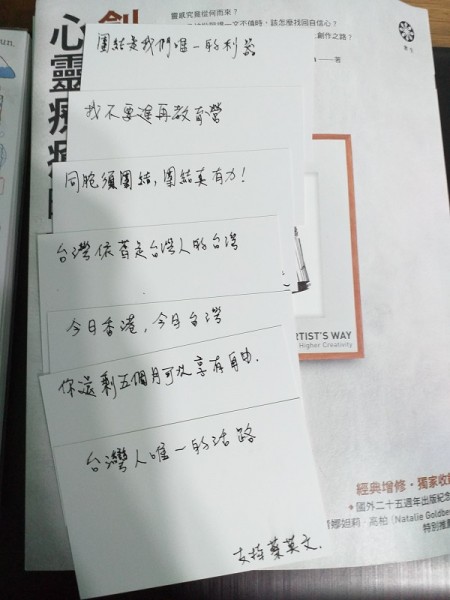 靈感究竟從何而來?
一文不值時,該怎麼找回自信心?
創作之路?
著
創
心靈療
團結是我們唯一的利器
我不要進再教育營
同胞須團結,團結真有力!
台灣依舊是台灣人的台灣
今日香港,今日台灣
ARTIST'S WAY
Higher Creativity
你還剩五個月可以享有自由.
台灣人唯一的活路
經典增修・獨家收
→國外二十五週年出版紀念
娜妲莉・高柏 (Natalie Goldbe
特別推
支持蔡英文.